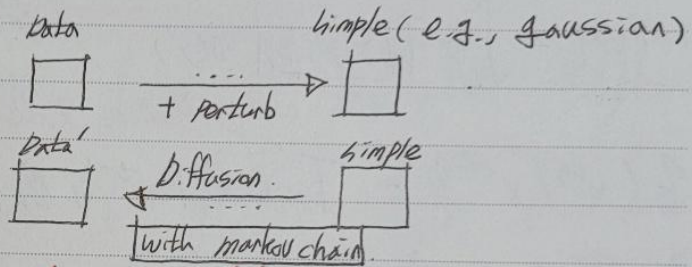 Data Simple (e.g., gaussian)
....
+ Perturb
Data' Simple
Diffusion.
....
with markov chain.